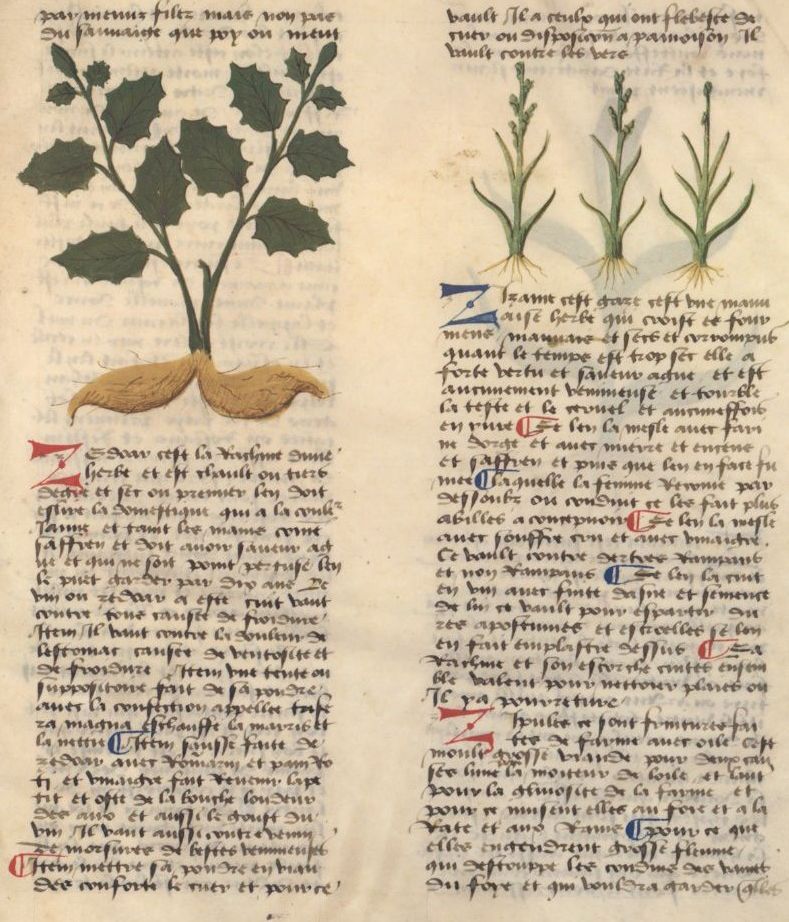 par menus filez mais non pas
du sauuaige que poy ou nient
Zedoar cest la Rachine dune
herbe et est chault ou tiers
degre et sec ou premier len doit
eslire la domestique qui a la coulr
Jaune et taint les mains come
saffren et doit auoir saueur ag
ue et qui ne soit point pertuse len
le puet garder par dix ans De
vin ou zedoar a este cuit vaut
contre tous causee de froidure
Item Il vaut contre la douleur de
lestomac causee de ventosite et
de froidure Item vne tente ou
suppositoire fait de sa pouldre
auec la confection appellee trife
ra magna eschauffe la marris et
la nettie Item sausse faite de
zedoar auec Romarin et pain Ro
ti et vinaigre fait reuenir lape
tit et oste de la bouche loudeur
des aux et aussi le goust du
vin Il vaut aussi contre venin
de morsures de bestes venimeuses
Item mettre sa pouldre en vian
des conforte le cuer et pour ce
vault Il a ceulx qui ont flebesce de
cuer ou disposicion a pamoison Il
vault contre les vers
Zizanie cest gaze cest vne mauu
aise herbe qui croist es four
mens mauuais et secs et corrompus
quant le temps est trop sec elle a
forte vertu et saueur ague et est
aucunement venimeuse et tourble
la teste et le ceruel et aucuneffois
en yure Se len la mesle auec fari
ne dorge et auec mierre et encens
et saffren et puis que len en face fu
mee laquelle la femme Recoiue par
dessoubz ou conduit ce les fait plus
abilles a conception Se len la mesle
auec souffre cru et auec vinaigre
Ce vault contre dertres Rampans
et non Rampans Se len la cuit
en vin auec fiente dasne et semence
de lin ce vault pour espartir du
res apostumes et escroelles se len
en fait emplastre dessus La
Rachine et son escorche cuites ensem
ble valent pour nettoier plaies ou
Il y a pourreture
Zipules ce sont fritures fai
tes de farine auec oile Cest
moult grosse viande pour deux cau
ses lune la moiteur de loile et laut
pour la glinosite de la farine et
pour ce nuisent elles au foie et a la
Rate et aux Rains pour ce que
elles engendrent grosse fleume
qui destouppe les conduis des vaines
du foye et qui vouldra garder